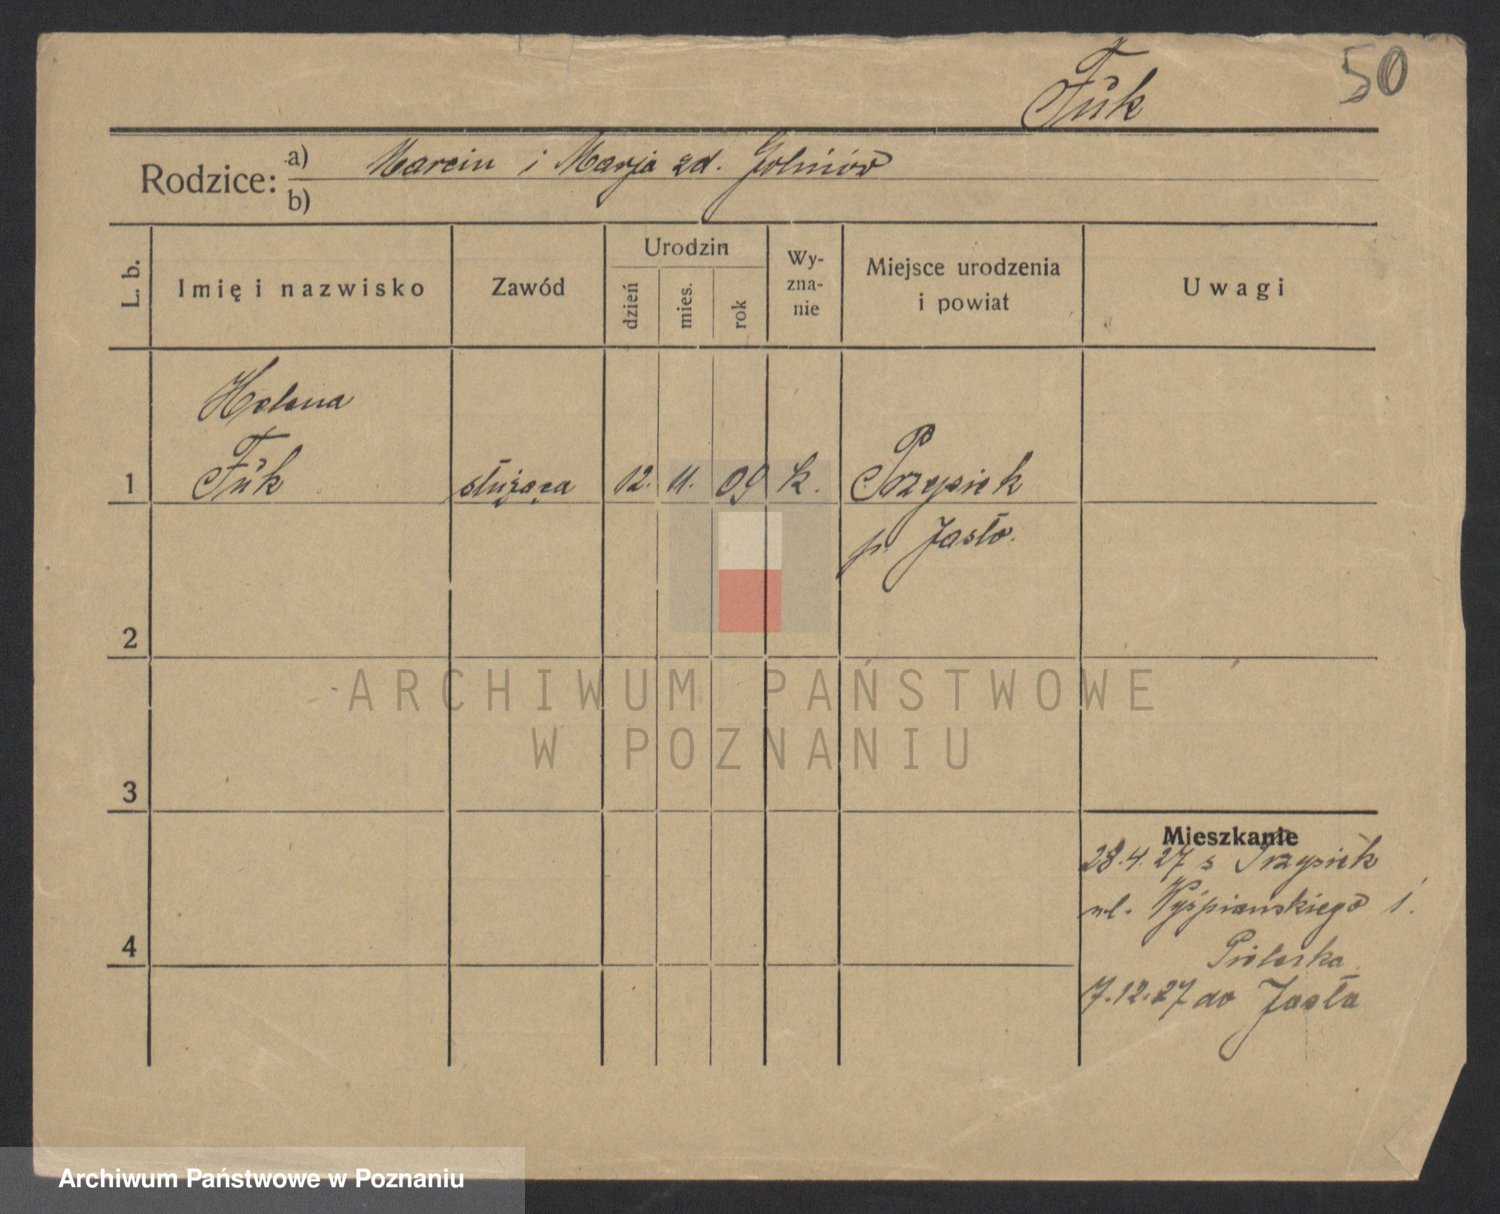 Fúk
50
Rodzice: a) Marcin i Marja zd.
b)
L. b.
Imię i nazwisko
Zawód
Urodzin
dzień
mies.
rok
Wy-
zna-
nie
Miejsce urodzenia
i powiat
Uwagi
Helena
1 Fúk służąca 12. 11. 09 k. Przysiek
p. Jasło.
2
3
Mieszkanie
28.4.27 z Przysiek
ul. Wyśpianskiego 1.
4
7.12.27 do Jasła
ARCHIWUM PAŃSTWOWE
W POZNANIU
Archiwum Państwowe w Poznaniu